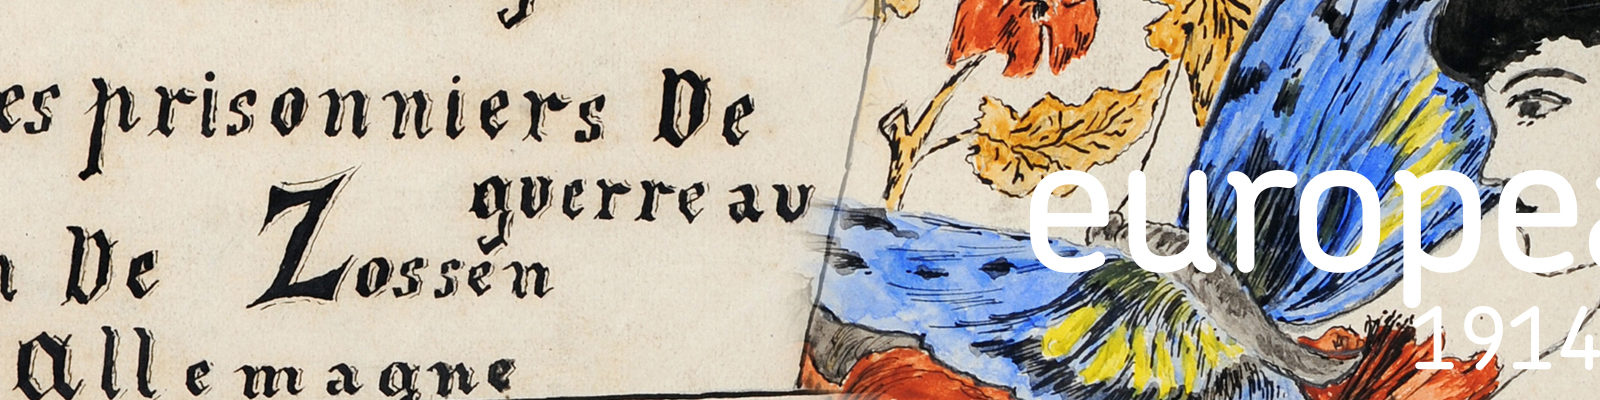 es prisonniers De
guerre au
De Zossen
Allemagne
europea
1914